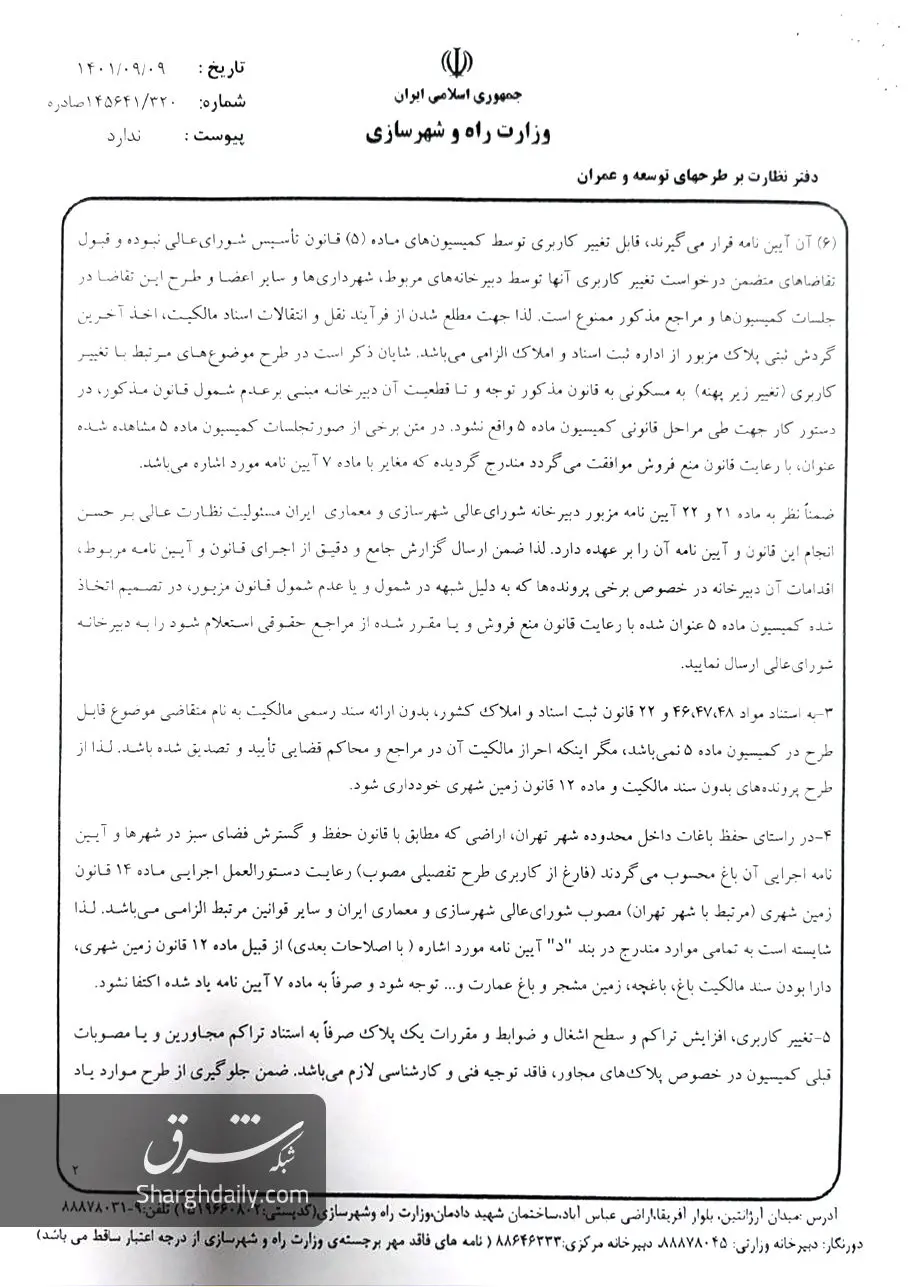 جمهوری اسلامی ایران
وزارت راه و شهرسازی
تاریخ : ۱۴۰۱/۰۹/۰۹
شماره: ۱۴۵۶۴۱/۳۲۰صادره
پیوست : ندارد
دفتر نظارت بر طرحهای توسعه و عمران
(۶) آن آیین نامه قرار می‌گیرند، قابل تغییر کاربری توسط کمیسیون‌های ماده (۵) قانون تأسیس شورای‌عالی نبوده و قبول
تقاضاهای متضمن درخواست تغییر کاربری آنها توسط دبیرخانه‌های مربوط، شهرداری‌ها و سایر اعضا و طرح این تقاضا در
جلسات کمیسیون‌ها و مراجع مذکور ممنوع است. لذا جهت مطلع شدن از فرآیند نقل و انتقالات اسناد مالکیت، اخذ آخرین
گردش ثبتی پلاک مزبور از اداره ثبت اسناد و املاک الزامی می‌باشد. شایان ذکر است در طرح موضوع‌های مرتبط با تغییر
کاربری (تغییر زیر پهنه) به مسکونی به قانون مذکور توجه و تا قطعیت آن دبیرخانه مبنی برعدم شمول قانون مذکور، در
دستور کار جهت طی مراحل قانونی کمیسیون ماده ۵ واقع نشود. در متن برخی از صورتجلسات کمیسیون ماده ۵ مشاهده شده
عنوان، با رعایت قانون منع فروش موافقت می‌گردد مندرج گردیده که مغایر با ماده ۷ آیین نامه مورد اشاره می‌باشد.
ضمناً نظر به ماده ۲۱ و ۲۲ آیین نامه مزبور دبیرخانه شورای‌عالی شهرسازی و معماری ایران مسئولیت نظارت عالی بر حسن
انجام این قانون و آیین نامه آن را بر عهده دارد. لذا ضمن ارسال گزارش جامع و دقیق از اجرای قانون و آیین نامه مربوط،
اقدامات آن دبیرخانه در خصوص برخی پرونده‌ها که به دلیل شبهه در شمول و یا عدم شمول قانون مزبور، در تصمیم اتخاذ
شده کمیسیون ماده ۵ عنوان شده با رعایت قانون منع فروش و یا مقرر شده از مراجع حقوقی استعلام شود را به دبیرخانه
شورای‌عالی ارسال نمایید.
۳-به استناد مواد ۴۶،۴۷،۴۸ و ۲۲ قانون ثبت اسناد و املاک کشور، بدون ارائه سند رسمی مالکیت به نام متقاضی موضوع قابل
طرح در کمیسیون ماده ۵ نمی‌باشد، مگر اینکه احراز مالکیت آن در مراجع و محاکم قضایی تأیید و تصدیق شده باشد. لذا از
طرح پرونده‌های بدون سند مالکیت و ماده ۱۲ قانون زمین شهری خودداری شود.
۴-در راستای حفظ باغات داخل محدوده شهر تهران، اراضی که مطابق با قانون حفظ و گسترش فضای سبز در شهرها و آیین
نامه اجرایی آن باغ محسوب می‌گردند (فارغ از کاربری طرح تفصیلی مصوب) رعایت دستورالعمل اجرایی ماده ۱۴ قانون
زمین شهری (مرتبط با شهر تهران) مصوب شورای‌عالی شهرسازی و معماری ایران و سایر قوانین مرتبط الزامی می‌باشد. لذا
شایسته است به تمامی موارد مندرج در بند "د" آیین نامه مورد اشاره ( با اصلاحات بعدی) از قبیل ماده ۱۲ قانون زمین شهری،
دارا بودن سند مالکیت باغ، باغچه، زمین مشجر و باغ عمارت و... توجه شود و صرفاً به ماده ۷ آیین نامه یاد شده اکتفا نشود.
۵-تغییر کاربری، افزایش تراکم و سطح اشغال و ضوابط و مقررات یک پلاک صرفاً به استناد تراکم مجاورین و یا مصوبات
قبلی کمیسیون در خصوص پلاک‌های مجاور، فاقد توجیه فنی و کارشناسی لازم می‌باشد. ضمن جلوگیری از طرح موارد یاد
۲
شبکه شرق
Sharghdaily.com
آدرس :میدان آرژانتین، بلوار آفریقا،اراضی عباس آباد،ساختمان شهید دادمان،وزارت راه وشهرسازی(کدپستی:۱۵۱۹۶۶۰۸۰۲) تلفن:۹-۸۸۸۷۸۰۳۱
دورنگار: دبیرخانه وزارتی: ۸۸۸۷۸۰۴۵، دبیرخانه مرکزی:۸۸۶۴۶۳۳۳ ( نامه های فاقد مهر برجسته‌ی وزارت راه و شهرسازی از درجه اعتبار ساقط می باشد)